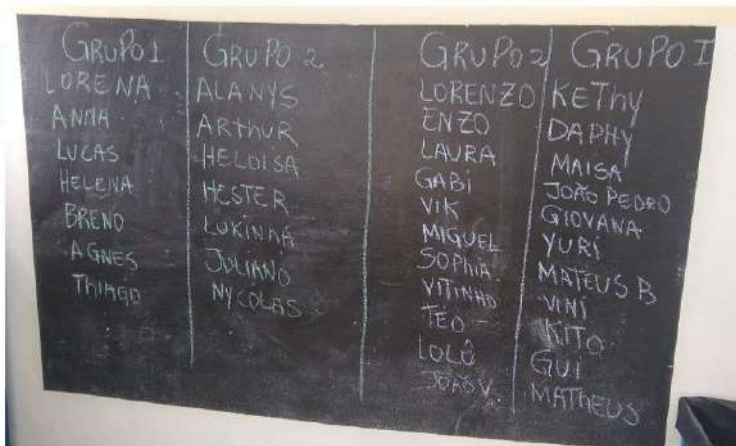 GRUPO 1
LORENA
ANNA
LUCAS
HELENA
BRENO
AGNES
THIAGO
GRUPO 2
ALANYS
ARTHUR
HELOISA
HESTER
LUKINHA
JULIANO
NYCOLAS
GRUPO 2
LORENZO
ENZO
LAURA
GABI
VIK
MIGUEL
SOPHIA
VITINHO
TEO
LOLÔ
JOÃO V.
GRUPO I
KETHY
DAPHY
MAISA
JOÃO PEDRO
GIOVANA
YURI
MATEUS B
VINI
KITO
GUI
MATHEUS